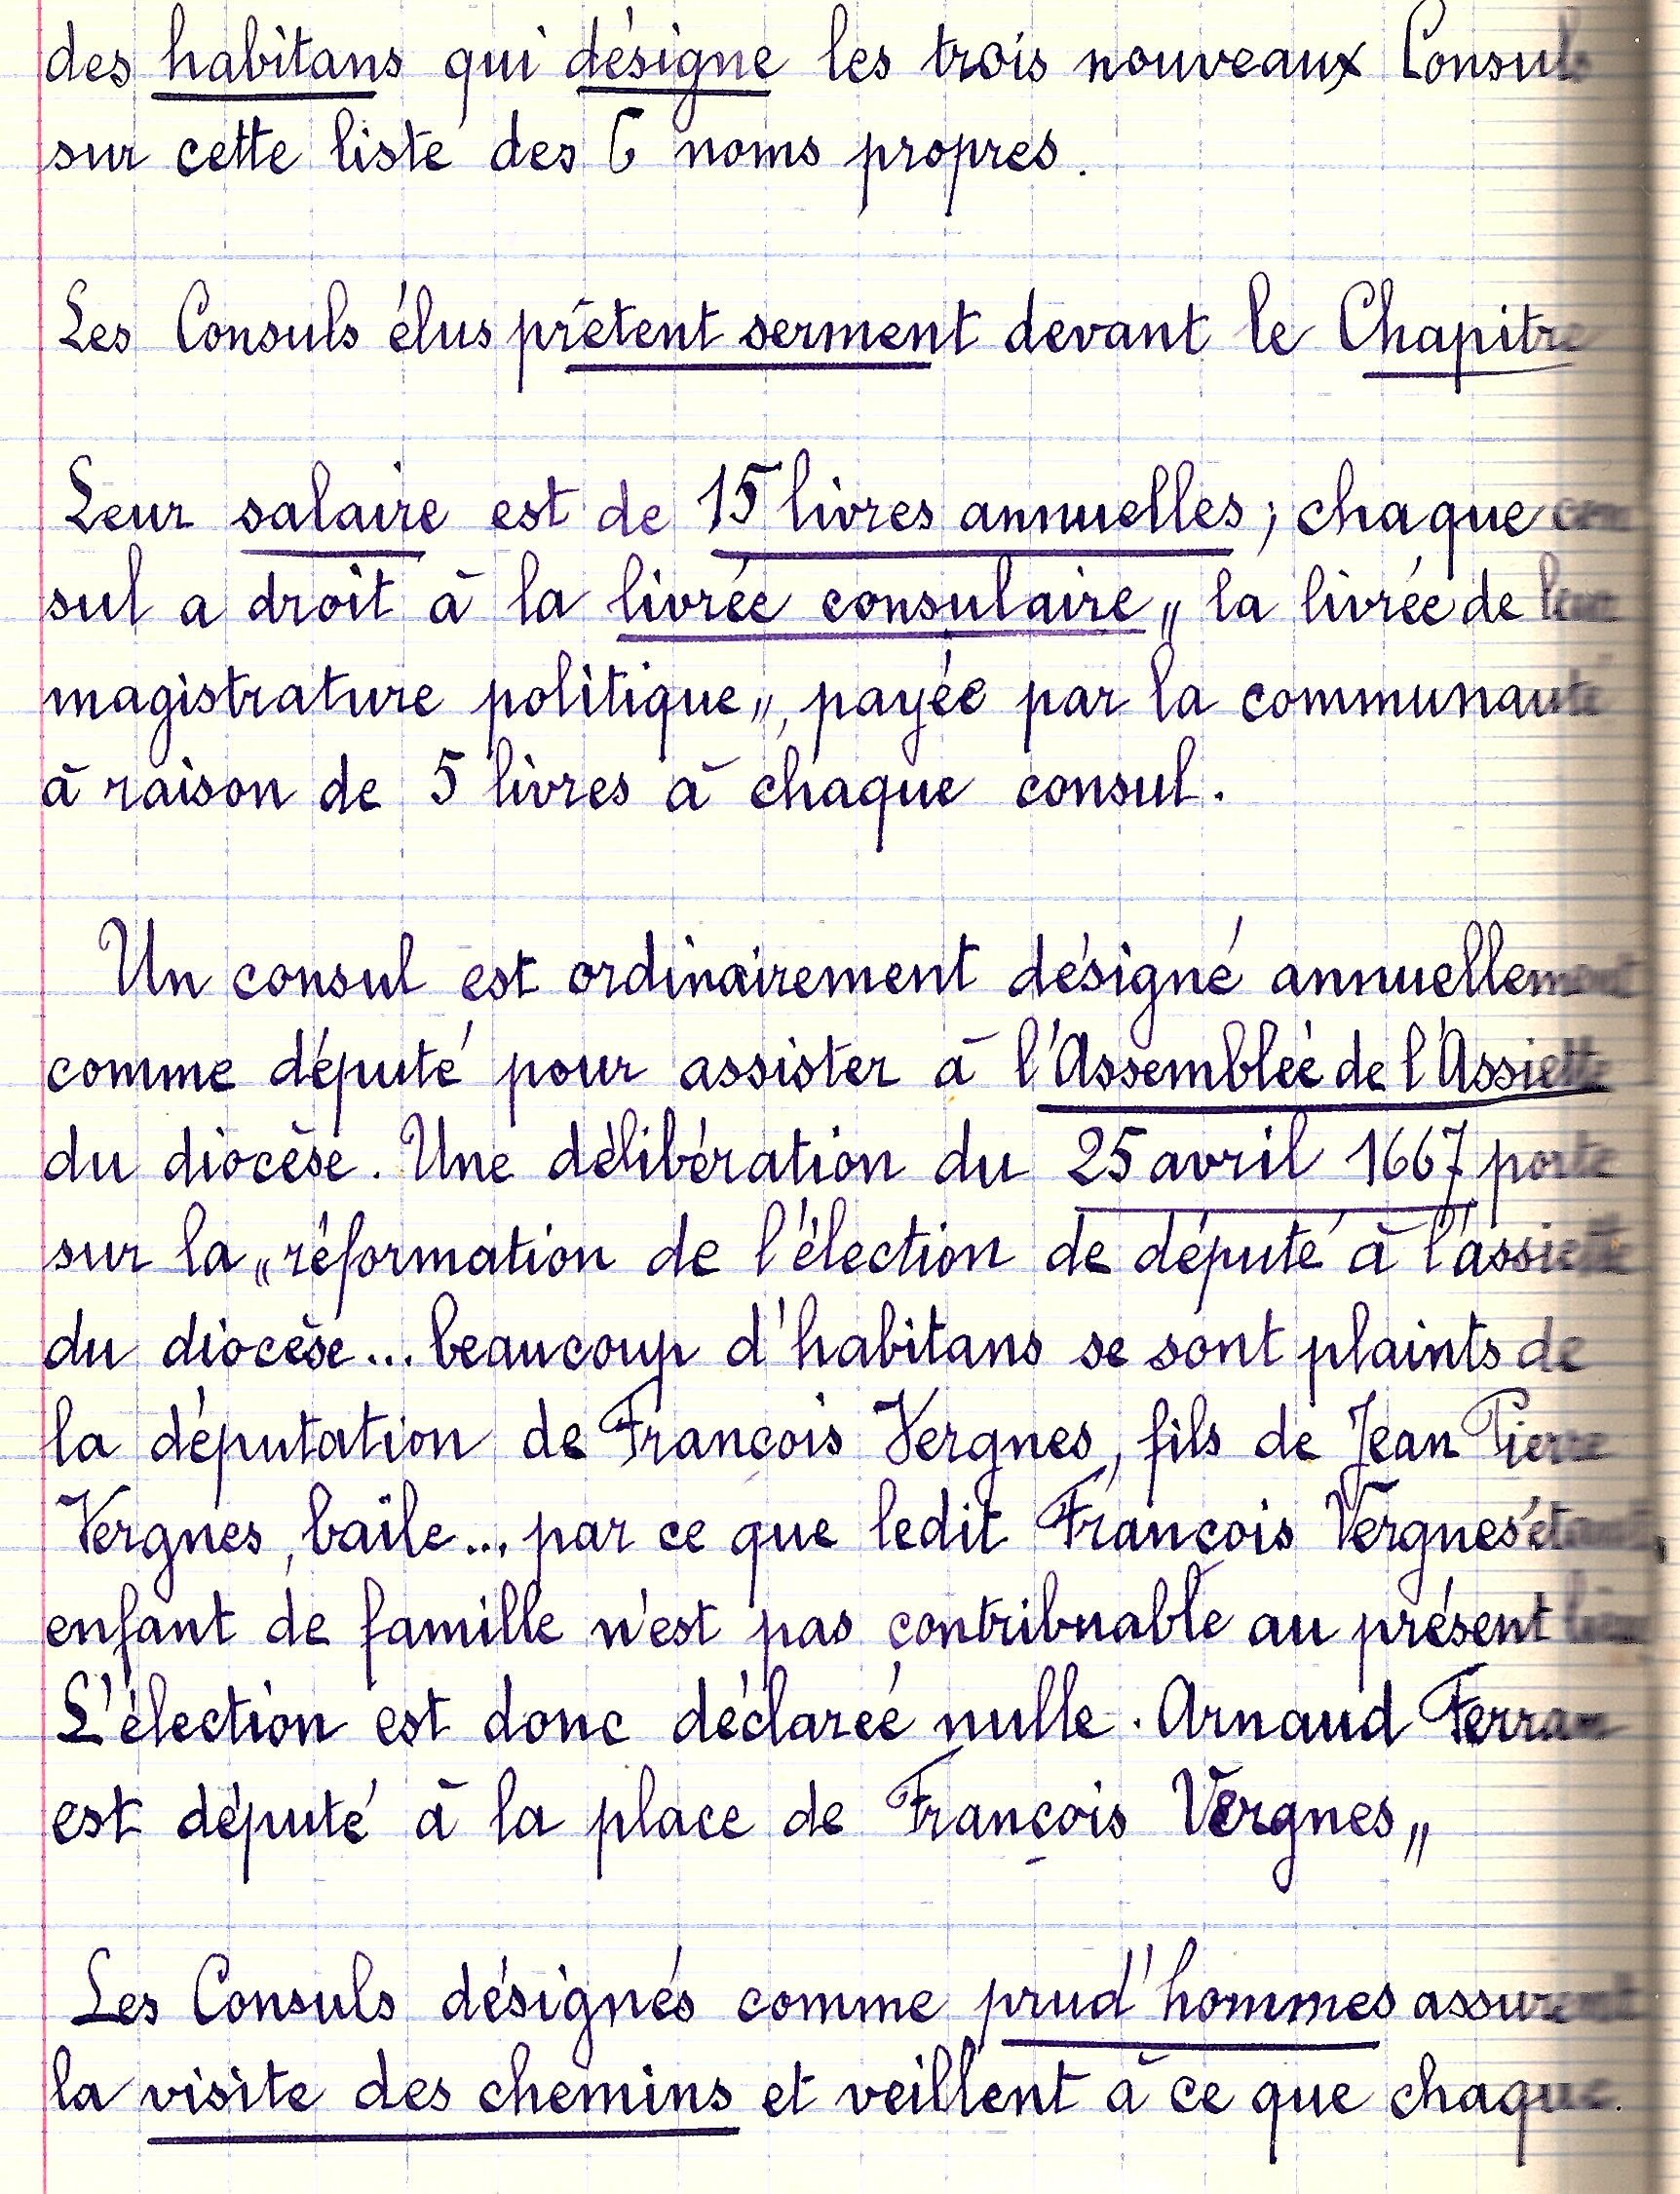 des habitans qui désigne les trois nouveaux Consuls
sur cette liste des 6 noms propres.
Les Consuls élus prêtent serment devant le Chapitre
Leur salaire est de 15 livres annuelles ; chaque con
sul a droit à la livrée consulaire „ la livrée de leur
magistrature politique „, payée par la communauté
à raison de 5 livres à chaque consul.
Un consul est ordinairement désigné annuellement
comme député pour assister à l'Assemblée de l'Assiette
du diocèse. Une délibération du 25 avril 1667 porte
sur la „ réformation de l'élection de député à l'assiette
du diocèse... beaucoup d'habitans se sont plaints de
la députation de François Vergnes, fils de Jean Pierre
Vergnes, baile... par ce que ledit François Vergnes étant,
enfant de famille n'est pas contribuable au présent lieu
L'élection est donc déclarée nulle. Arnaud Ferran
est député à la place de François Vergnes „
Les Consuls désignés comme prud'hommes assurent
la visite des chemins et veillent à ce que chaque